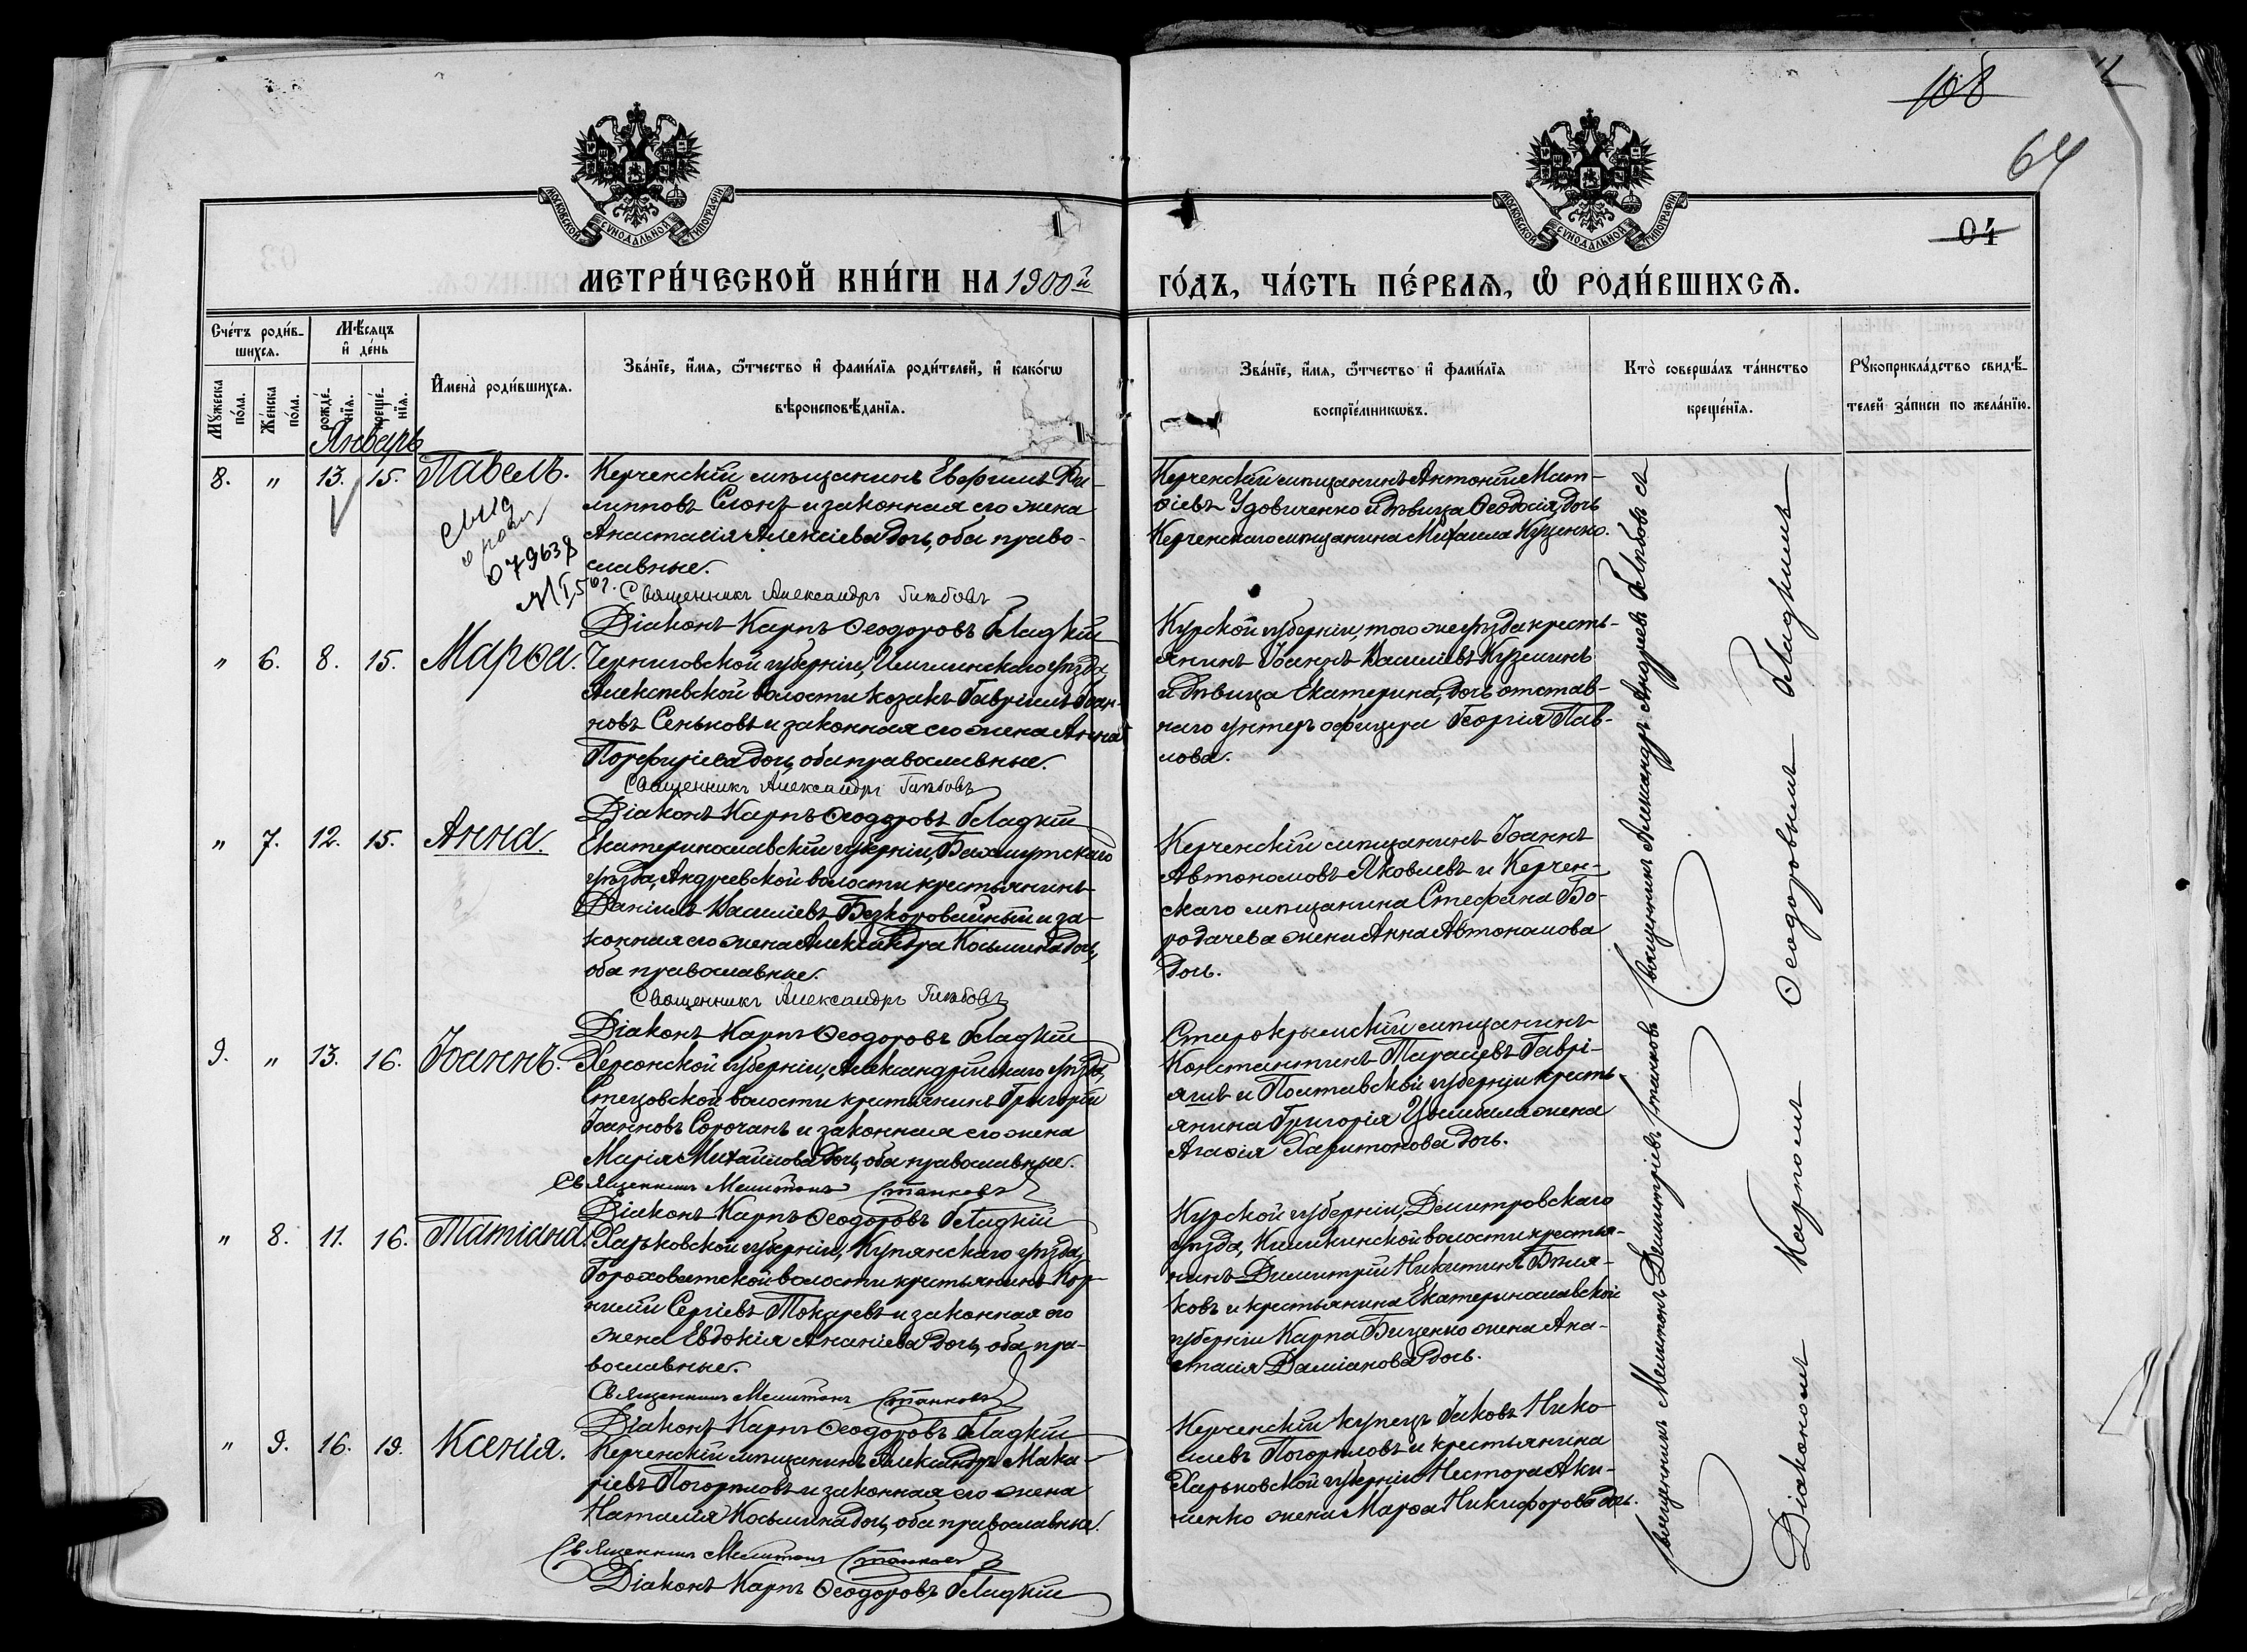 108
64
04
МОСКОВСКОЙ СѴНОДАЛЬНОЙ ТИПОГРАФІИ
МОСКОВСКОЙ СѴНОДАЛЬНОЙ ТИПОГРАФІИ
МЕТРИ́ЧЕСКОЙ КНИ́ГИ НА 1900й
ГО́ДЪ, ЧА́СТЬ ПЕ́РВАѦ, Ѽ РОДИ́ВШИХСѦ.
Сче́тъ роди́в-
шихсѧ.
Мѣ́сѧцъ
и҆ де́нь
Мꙋ́жеска
по́ла.
Же́нска
по́ла.
рожде́-
нїѧ.
креще́-
нїѧ.
И҆мена̀ роди́вшихсѧ.
Зва́нїе, и҆́мѧ, ѻ҆́тчество и҆ фами́лїѧ роди́телей, и҆ како́гѡ
вѣроисповѣ́данїѧ.
Зва́нїе, и҆́мѧ, ѻ҆́тчество и҆ фами́лїѧ
воспрїе́мникѡвъ.
Кто̀ соверша́лъ та́инство
креще́нїѧ.
Рꙋкоприкла́дство свидѣ́-
телей за́писи по жела́нїю.
Январь
8. " 13. 15. Павелъ.
079638
Керченскій мѣщанинъ Евфимъ Фи-
липповъ Слонъ и законная его жена
Анастасія Алексіева дочь, оба право-
славные.
Священникъ Александръ Глѣбовъ
Діаконъ Карпъ Ѳеодоровъ Гладкій
Керченскій мѣщанинъ Антоній Мат-
ѳіевъ Удовиченко и дѣвица Ѳеодосія, дочь
Керченскаго мѣщанина Михаила Куценко.
" 6. 8. 15. Марѳа.
Черниговской губерніи, уѣзда,
Алексѣевской волости козакъ Гавріилъ Іоан-
новъ Сеньковъ и законная его жена Анна
Порфиріева дочь, оба православные.
Священникъ Александръ Глѣбовъ
Діаконъ Карпъ Ѳеодоровъ Гладкій
Курской губерніи, того же уѣзда кресть-
янинъ Іоаннъ Василіевъ Кузминъ
и дѣвица Екатерина, дочь отстав-
наго унтеръ офицера Георгія Пав-
лова.
" 7. 12. 15. Анна.
Екатеринославскій губерніи, Бахмутскаго
уѣзда, Андреевской волости крестьянинъ
Даніилъ Василіевъ Безкоровайный и за-
конная его жена Александра Косьмина дочь,
оба православные.
Священникъ Александръ Глѣбовъ
Діаконъ Карпъ Ѳеодоровъ Гладкій
Керченскій мѣщанинъ Іоаннъ
Автономовъ Яковлевъ и Керчен-
скаго мѣщанина Стефана Бо-
родачева жена Анна Автономова
дочь.
9. " 13. 16. Іоаннъ.
Херсонской губерніи, Александрійскаго уѣзда,
Стецовской волости крестьянинъ Григорій
Іоанновъ Сорочанъ и законная его жена
Марія Михаилова дочь, оба православные.
Священникъ Мелитонъ Станковъ
Діаконъ Карпъ Ѳеодоровъ Гладкій
Старокрымскій мѣщанинъ
Константинъ Тарасіевъ Гаврі-
яшъ и Полтавской губерніи кресть-
янина Григорія Цымбала жена
Агаѳія Харитонова дочь.
" 8. 11. 16. Татіана.
Харьковской губерніи, Купянскаго уѣзда,
Гороховатской волости крестьянинъ Кор-
нилій Сергіевъ Токаревъ и законная его
жена Евдокія Ананіева дочь, оба пра-
вославные.
Священникъ Мелитонъ Станковъ
Діаконъ Карпъ Ѳеодоровъ Гладкій
Курской губерніи, Димитровскаго
уѣзда, волости крестья-
нинъ Димитрій Никитинъ Бѣля-
ковъ и крестьянина Екатеринославской
губерніи Карпа Биценко жена Ана-
стасія Даміанова дочь.
" 9. 16. 19. Ксенія.
Керченскій мѣщанинъ Александръ Мака-
ріевъ Погорѣловъ и законная его жена
Наталія Косьмина дочь, оба православные.
Священникъ Мелитонъ Станковъ
Діаконъ Карпъ Ѳеодоровъ Гладкій
Керченскій купецъ Іаковъ Нико-
лаевъ Погорѣловъ и крестьянина
Харьковской губерніи Нестора Аки-
менко жена Марѳа Никифорова дочь.
Священникъ Мелитонъ Димитріевъ Станковъ Священникъ Александръ Андреевъ Глѣбовъ съ
Діакономъ Карпомъ Ѳеодоровымъ Гладкимъ